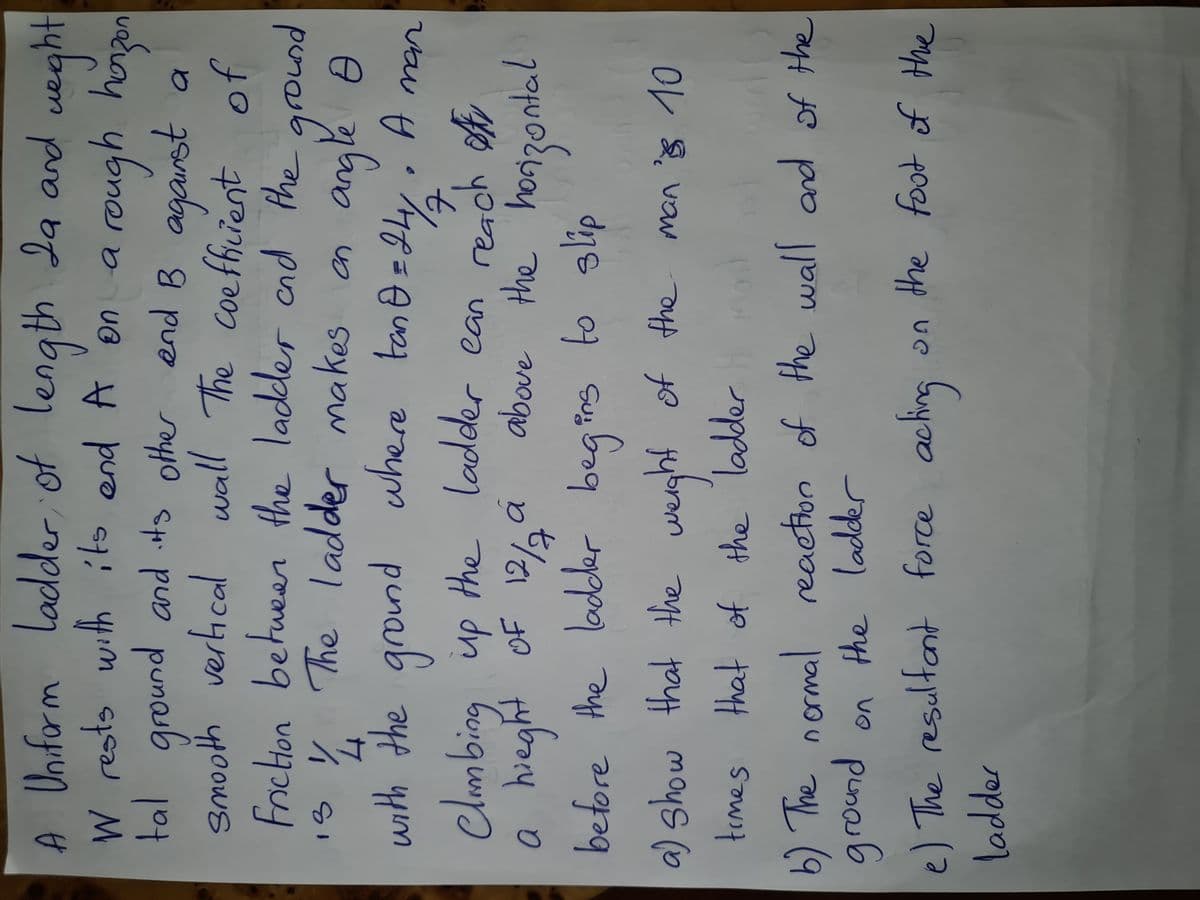 A Uniform ladder, of length 2a and weght
W rests with its end A on a rough horizon
tal ground and its other end B against a
smooth vertical wall The coefficient of
friction between the ladder and the ground
is 1/4 The ladder makes an angle θ
with the ground where tan θ = 24/7. A man
Climbing up the ladder can reach
a hieght of 12/7 a above the horizontal
before the ladder begins to slip
a) Show that the weight of the man is 10
times that of the ladder
b) The normal reaction of the wall and of the
ground on the ladder
e) The resultant force aching on the foot of the
ladder